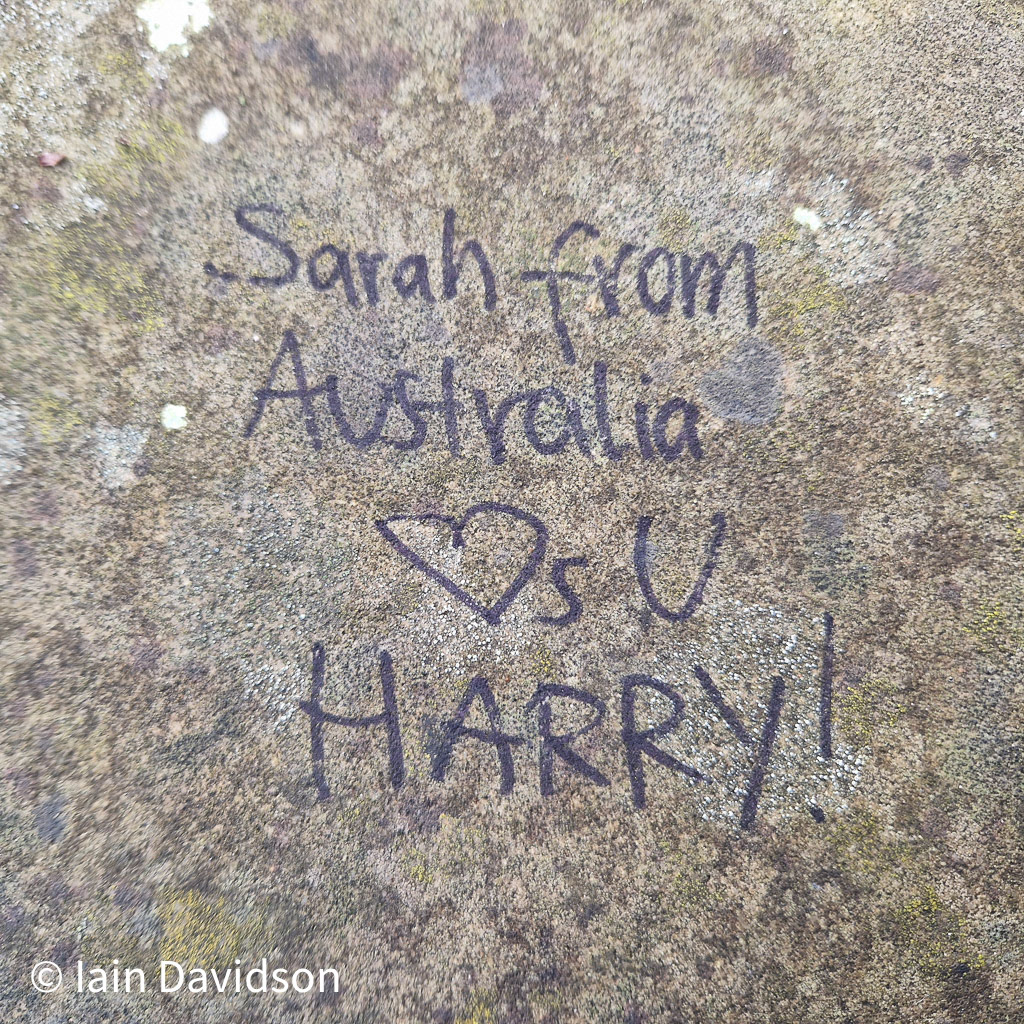 Sarah from
Australia
♡s U
HARRY!
© Iain Davidson